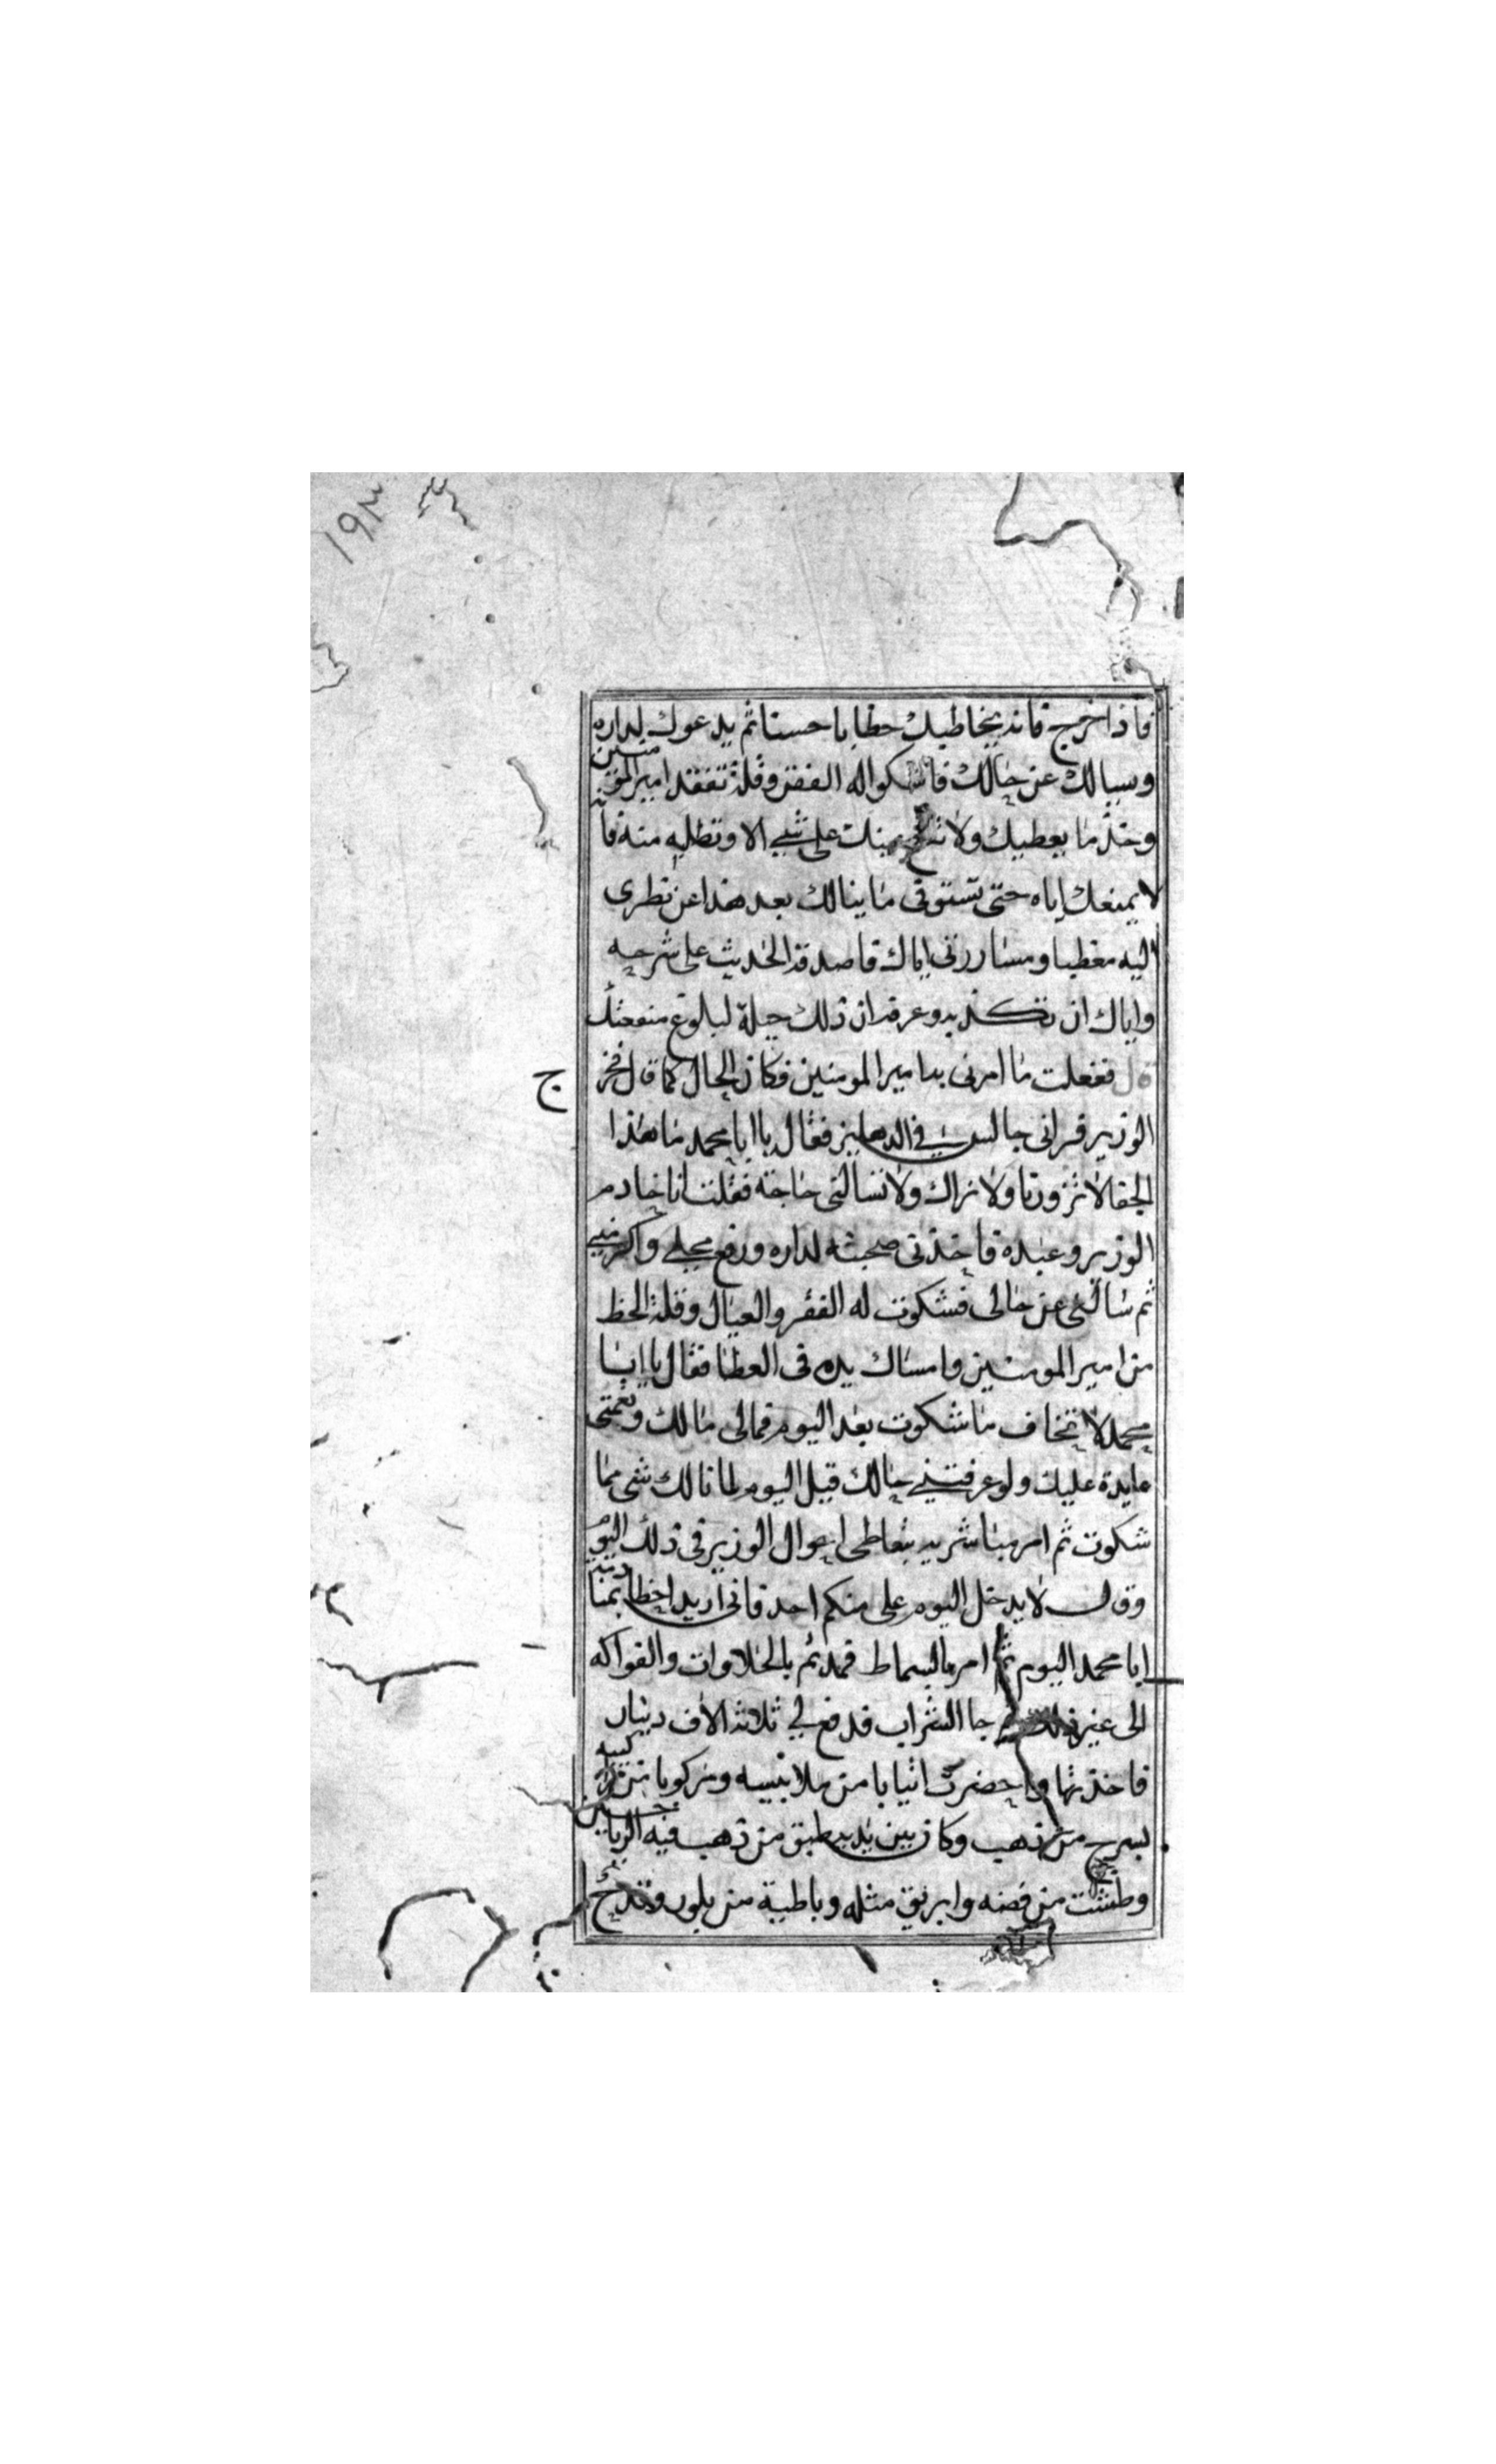 ١٩٣
فاذا خرج فانه يخاطبك خطابا حسنا ثم يدعوك لداره
وسيالك عن حالك فاشكوا له الفقر وقلة تفقد امير المومنين
وخذ ما يعطيك ولا تقع عينك على شي الا وتطلبه منه فانه
لا يمنعك اياه حتى تستوفى ما ينالك بعد هذا عن نظرى
اليه مغطبا ومساررتى اياك فاصدقه الحديث على شرحه
واياك ان تكذبه وعرفه ان ذلك حيلة لبلوغ منفعتك
قال ففعلت ما امرنى به امير المومنين فكان الحال كما قال فخرج
الوزير فرانى جالس في الدهليز فقال يا ابا محمد ما هذا
الجفا لا تزورنا ولا نراك ولا تسالنى حاجة فقلت انا خادم
الوزير وعبده فاخذنى صحبته لداره ورفع محلي واكرمني
ثم سالنى عن حالى فشكوت له الفقر والعيال وقلة الحظ
من امير المومنين وامساك يده فى العطا فقال يا ابا
محمد لا تخاف ما شكوت بعد اليوم فمالى مالك ونعمتى
عايدة عليك ولو عرفتني حالك قبل اليوم لما نالك شى مما
شكوت ثم امر مباشريه بتعاطى احوال الوزير فى ذلك اليوم
وقال لا يدخل اليوم على منكم احد فانى اريد اخطا بمنادمة
ابا محمد اليوم ثم امر بالسماط فمد ثم بالحلاوات والفواكه
الى غير ذلك جا الشراب فدفع لي ثلاثة الاف دينار
فاخذتها واحضرت اثيابا من ملابسه ومركوبا من مراكبه
بسرج من ذهب وكان بين يديه طبق من ذهب فيه الرياحين
وطشت من فضه وابريق مثله وباطية من بلور وقدح